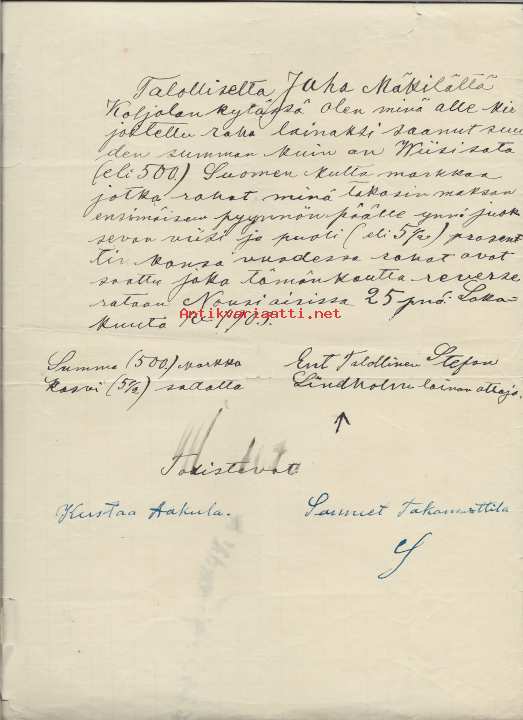 Talolliselta Juho Mäkilältä
Koljolan kylässä olen minä alle kir
joitettu raha lainaksi saanut suu
den summan kuin on Wiisisata
(eli 500) Suomen kulta markkaa
jotka rahat minä takasin maksan
ensimäisen pyynnön päälle ynnä juok
sevan viisi ja puoli (eli 5½) prosent
tin kansa vuodessa rahat ovat
saatu joka tämän kautta reverse
rataan Nousiaisissa 25 pnä. Loka-
kuuta 1903.
Antikvariaatti.net
Summa (500) markka
kasvu (5½) sadalta
Ent Talollinen Stefan
Lindholm lainan ottaja.
Todistavat
Kustaa Aakula.
Samuel Takamattila